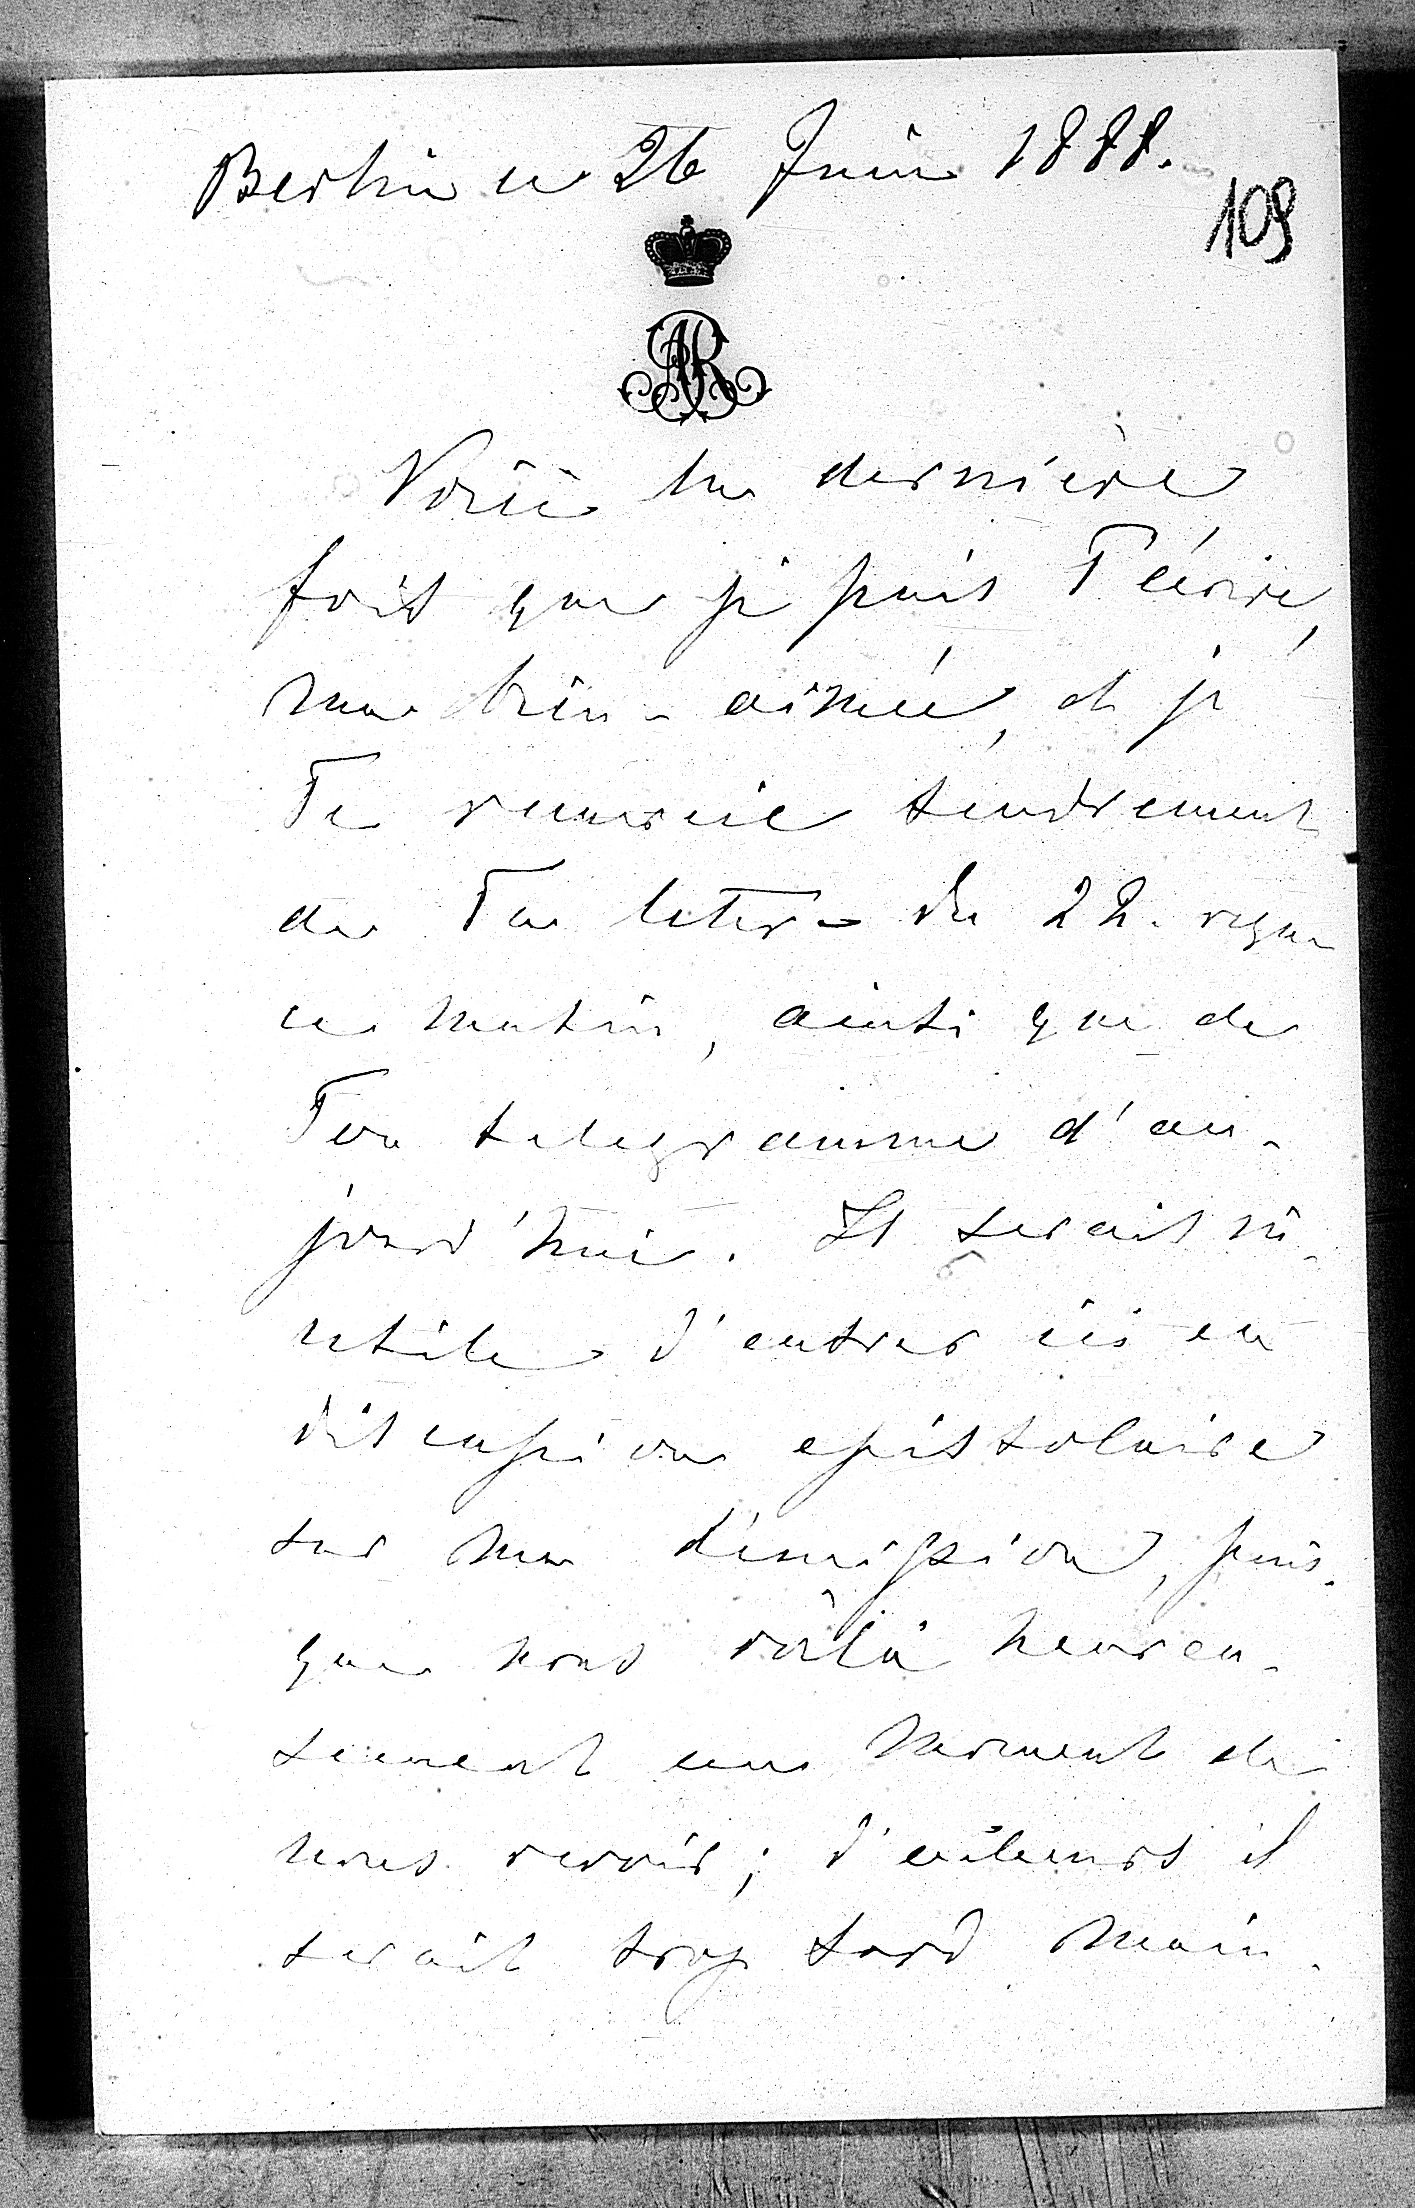 Berlin ce 26 Juin 1888.
109
AR
Voici la dernière
fois que je puis T'écrire,
ma bien-aimée, et je
Te remercie tendrement
de Ta lettre du 22. reçue
ce matin, ainsi que de
Ton telegramme d'au-
jourd'hui. Il serait in-
utile d'entrer ici en
discussion epistolaire
sur ma démission, puis-
que nous voilà heureu-
sement au moment de
nous revoir; d'ailleurs il
serait trop tard main-